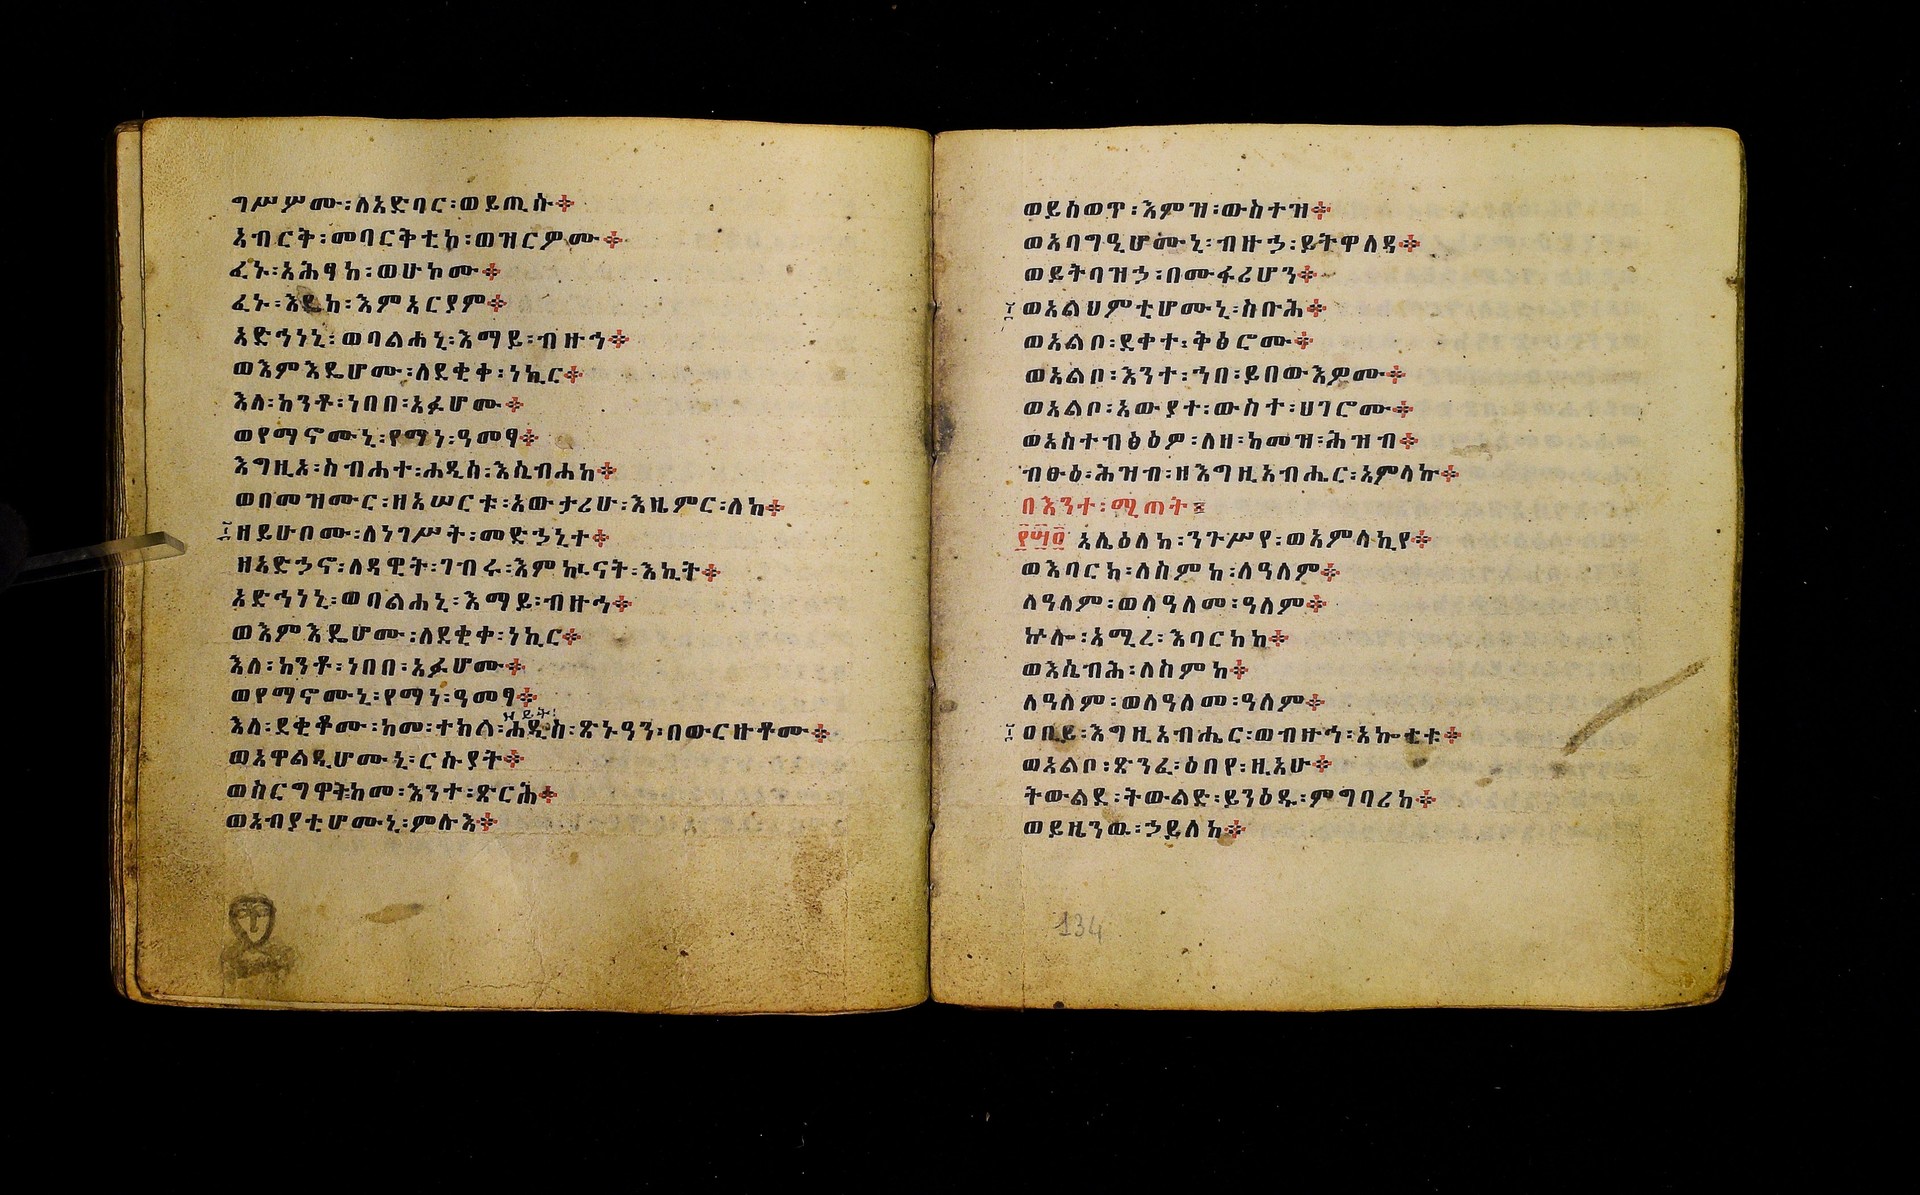 ግሥሦሙ፡ለአድባር፡ወይጢሱ፨
አብርቅ፡መባርቅቲከ፡ወዝርዎሙ፨
ፈኑ፡አሕፃከ፡ወሁኮሙ፨
ፈኑ፡እዴከ፡እምአርያም፨
አድኅነኒ፡ወባልሐኒ፡እማይ፡ብዙኅ፨
ወእምእዴሆሙ፡ለደቂቀ፡ነኪር፨
እለ፡ከንቶ፡ነበበ፡አፉሆሙ፨
ወየማኖሙኒ፡የማነ፡ዓመፃ፨
እግዚአ፡ስብሐተ፡ሐዲስ፡እሴብሐከ፨
ወበመዝሙር፡ዘአሠርቱ፡አውታሪሁ፡እዜምር፡ለከ፨
ዘይሁቦሙ፡ለነገሥት፡መድኃኒተ፨
ዘአድኃኖ፡ለዳዊት፡ገብሩ፡እምኲናት፡እኪት፨
አድኅነኒ፡ወባልሐኒ፡እማይ፡ብዙኅ፨
ወእምእዴሆሙ፡ለደቂቀ፡ነኪር፨
እለ፡ከንቶ፡ነበበ፡አፉሆሙ፨
ወየማኖሙኒ፡የማነ፡ዓመፃ፨
እለ፡ደቂቆሙ፡ከመ፡ተክል፡ሐዲስ፡ጽኑዓን፡በውርዙቶሙ፨
ወአዋልዲሆሙኒ፡ርሱያት፨
ወስርግዋት፡ከመ፡እንተ፡ጽርሕ፨
ወአብያቲሆሙኒ፡ምሉእ፨
ወይሰወጥ፡እምዝ፡ውስተዝ፨
ወአባግዒሆሙኒ፡ብዙኃ፡ይትዋለዳ፨
ወይትባዝኃ፡በሙፋሪሆን፨
ወአልህምቲሆሙኒ፡ስቡሕ፨
ወአልቦ፡ደቀተ፡ቅፅሮሙ፨
ወአልቦ፡እንተ፡ኀበ፡ይበውእዎሙ፨
ወአልቦ፡አውያተ፡ውስተ፡ሀገሮሙ፨
ወአስተብፅዕዎ፡ለዘ፡ከመዝ፡ሕዝብ፨
ብፁዕ፡ሕዝብ፡ዘእግዚአብሔር፡አምላኩ፨
በእንተ፡ሚጠት፡
፻፵፬ አሌዕለከ፡ንጉሥየ፡ወአምላኪየ፨
ወእባርክ፡ለስምከ፡ለዓለም፨
ለዓለም፡ወለዓለመ፡ዓለም፨
ኵሎ፡አሚረ፡እባርከከ፨
ወእሴብሕ፡ለስምከ፨
ለዓለም፡ወለዓለመ፡ዓለም፨
ዐቢይ፡እግዚአብሔር፡ወብዙኅ፡አኰቴቱ፨
ወአልቦ፡ጽንፈ፡ዕበየ፡ዚአሁ፨
ትውልደ፡ትውልድ፡ይንዕዱ፡ምግባሪከ፨
ወይዜንዉ፡ኃይለከ፨
134